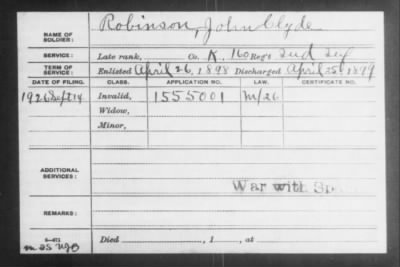 Robinson, John Clyde
NAME OF
SOLDIER:
SERVICE: Late rank, Co. K, 160 Reg't Ind Inf
TERM OF
SERVICE: Enlisted April 26, 1898 Discharged April 25, 1899
DATE OF FILING. CLASS. APPLICATION NO. LAW. CERTIFICATE NO.
1926 Sept 14 Invalid, 1555001 M/26
Widow,
Minor,
ADDITIONAL
SERVICES:
War with Sp
REMARKS:
Died , 1 , at